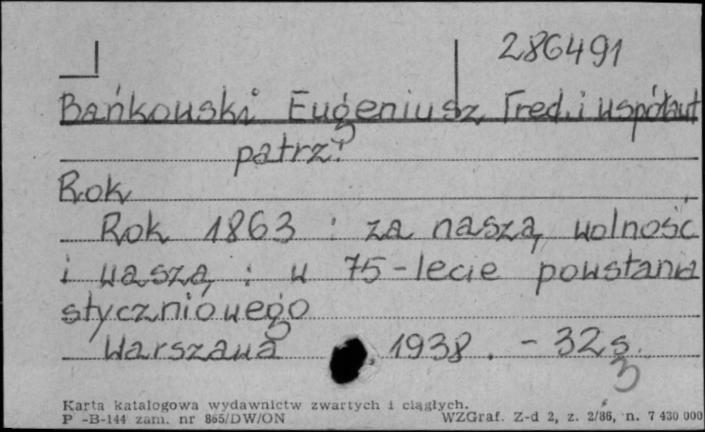 286491
Bańkowski Eugeniusz [red. i współaut
patrz:
Rok
Rok 1863 : za naszą wolność
i waszą : w 75-lecie powstania
styczniowego
Warszawa . 1938 . - 32 s.
3
Karta katalogowa wydawnictw zwartych i ciągłych.
P -B-144 zam. nr 865/DW/ON WZGraf. Z-d 2, z. 2/86, n. 7 430 000